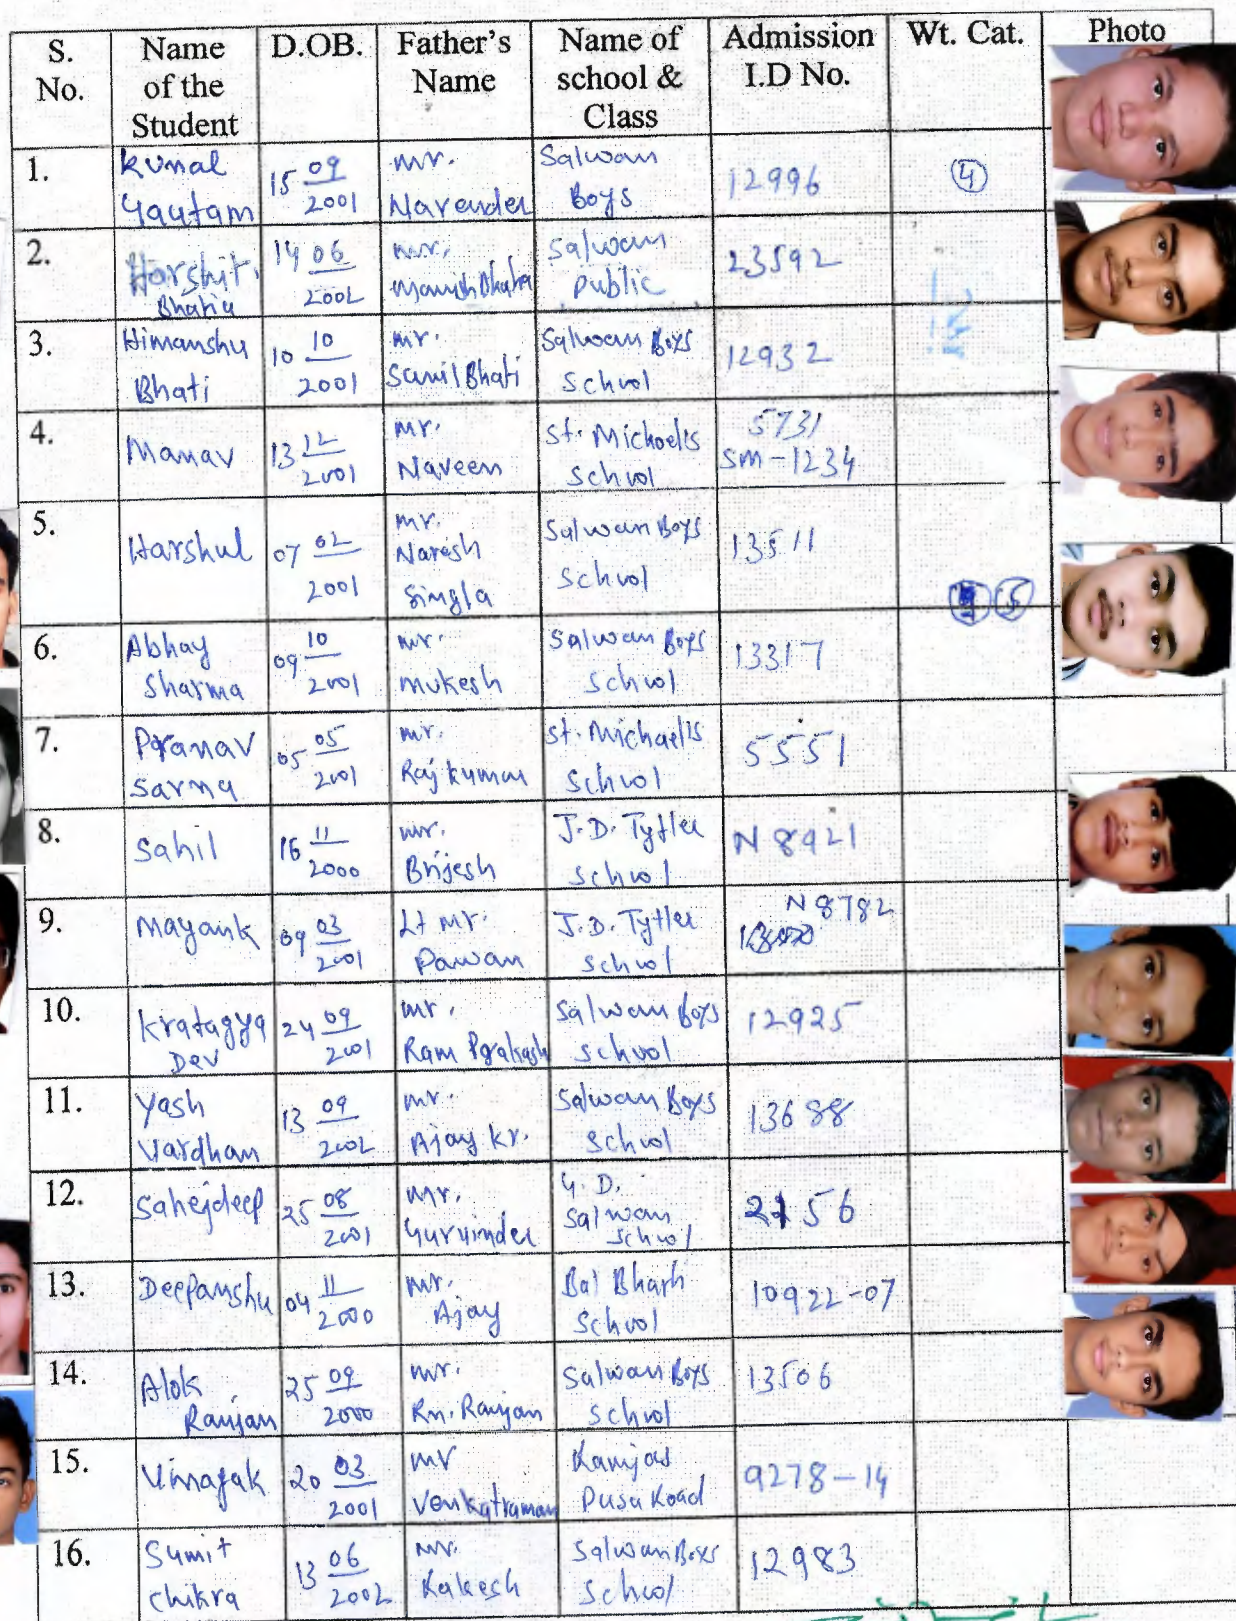 S. No. Name of the Student D.OB. Father's Name Name of school & Class Admission I.D No. Wt. Cat. Photo
1. Kunal Gautam 15 09 2001 mr. Narender Salwan Boys 12996 4
2. Harshit Bhatia 14 06 2002 mr. Manish Bhatia Salwan public 23592
3. Himanshu Bhati 10 10 2001 mr. Sunil Bhati Salwan Boys School 12932
4. Manav 13 12 2001 mr. Naveen St. Michael's School 5731 SM-1234
5. Harshul 07 02 2001 mr. Naresh Singla Salwan Boys School 13511 5
6. Abhay Sharma 09 10 2001 mr. mukesh Salwan Boys School 13317
7. Pranav Sarma 05 05 2001 mr. Raj kumar St. Michael's School 5551
8. Sahil 16 11 2000 mr. Brijesh J.D. Tytler School N 8921
9. Mayank 09 03 2001 Lt mr. Pawan J.D. Tytler School N 8782
10. Kratagya Dev 24 09 2001 mr. Ram Prakash Salwan Boys School 12925
11. Yash Vardhan 13 09 2002 mr. Ajay kr. Salwan Boys School 13688
12. Sahejdeep 25 08 2001 mr. Gurvinder G.D. Salwan School 2156
13. Deepanshu 04 11 2000 mr. Ajay Bal Bharti School 10922-07
14. Alok Ranjan 25 09 2000 mr. Rn. Ranjan Salwan Boys School 13506
15. Vinayak 20 03 2001 mr Venkatraman Ramjas Pusa Road 9278-14
16. Sumit Chikra 13 06 2002 mr. Rakesh Salwan Boys School 12983